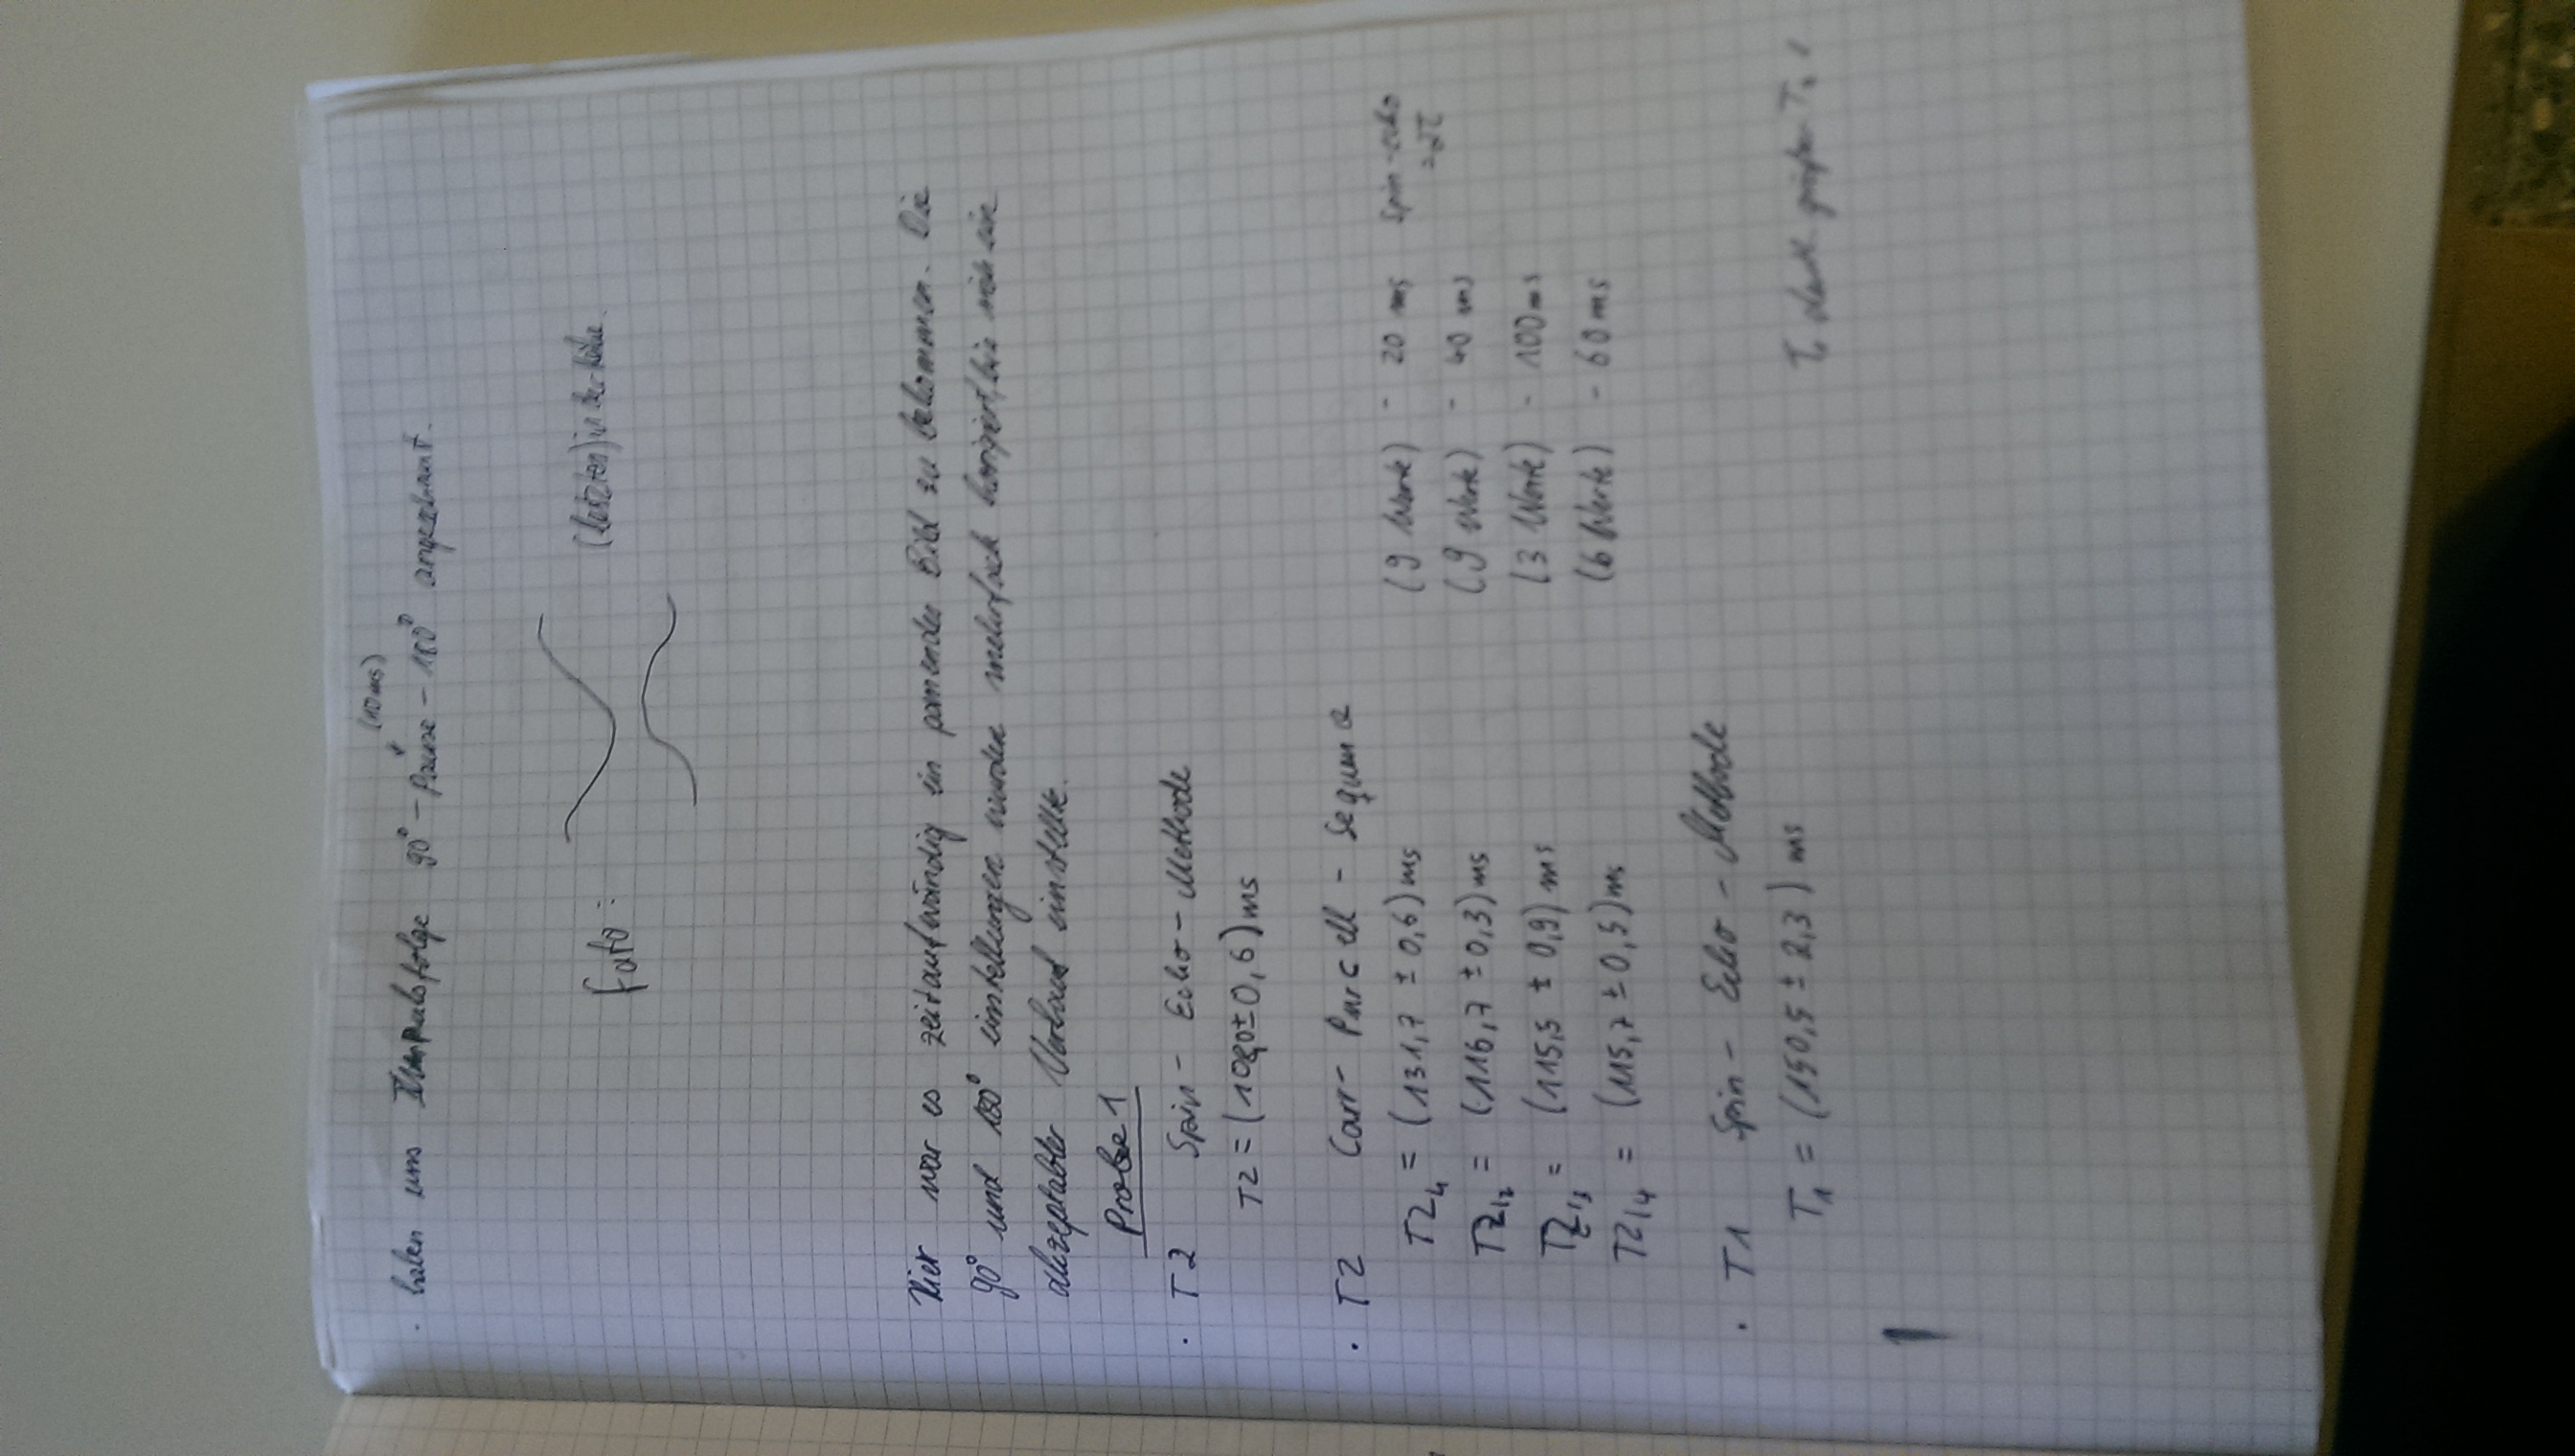 (10 ms)
· haben uns Impulsfolge 90° – Pause – 180° angeschaut.
Foto: in der Nähe.
Hier war es zeitaufwändig ein passendes Bild zu bekommen. Die
90° und 180° einstellungen wurden mehrfach korrigiert, bis sich ein
akzeptabler Verlauf einstellte.
Probe 1
· T2 Spin - Echo - Methode
T2 = (109,0 ± 0,6) ms
· T2 Carr - Purcell - Sequenz
T2,1 = (131,7 ± 0,6) ms (9 Werte) - 20 ms Spin-echo
T2,2 = (116,7 ± 0,3) ms (9 Werte) - 40 ms = 2τ
T2,3 = (115,5 ± 0,9) ms (3 Werte) - 100 ms
T2,4 = (115,7 ± 0,5) ms (6 Werte) - 60 ms
· T1 Spin - Echo - Methode
T1 = (150,5 ± 2,3) ms